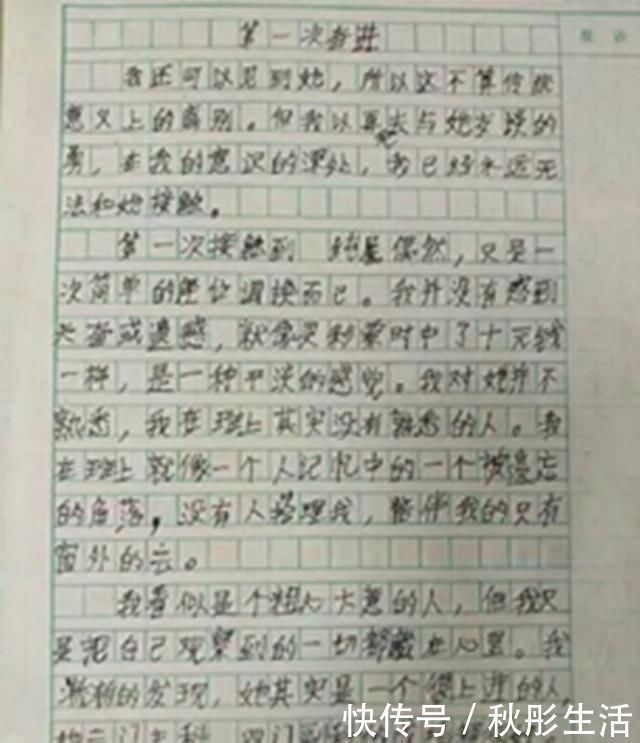 第一次香进
我还可以见到她，所以这不算传统
意义上的离别。但我以再去与她岁读的
勇，在我的意识的深处，我已经永远无
法和她接触。
第一次接触到 纯是偶然，又是一
次简单的座位调换而已。我并没有感到
兴奋或遗憾，就像买彩票时中了十元钱
一样，是一种平淡的感觉。我对她并不
熟悉，我在班上其实没有熟悉的人。我
在班上就像一个人记忆中的一个被遗忘
的角落，没有人搭理我，陪伴我的只有
窗外的云。
我看似是个粗心大意的人，但我只
是把自己观察到的一切都藏在心里。我
渐渐的发现，她其实是一个很上进的人
快传号／秋彤生活